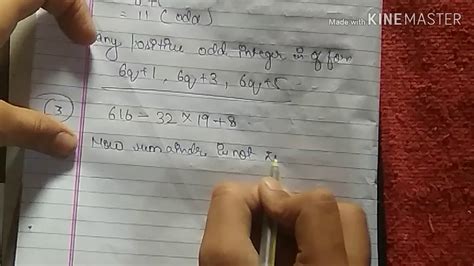 = 11 (odd)
Made with KINEMASTER
any positive odd integer is of form
6q+1, 6q+3, 6q+5
3
616 = 32 × 19 + 8
Now remainder is not